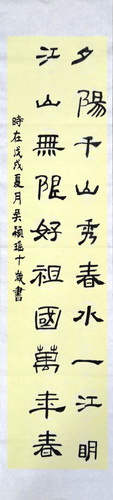 夕陽千山秀春水一江明
江山無限好祖國萬年春
時在戊戌夏月吳穎瑶十歲書